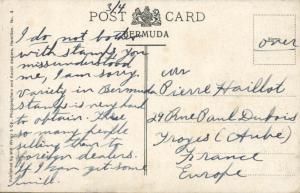 3/4
POST CARD
BERMUDA
over
I do not bother
with stamps you
misunderstood
me, I am sorry.
Variety in Bermuda
stamps is very hard
to obtain. There
so many people
selling them to
foreign dealers.
If I can get some
I will.
Mr
Pierre Haillot
29 Rue Paul Dubois
Troyes (Aube)
France
Europe